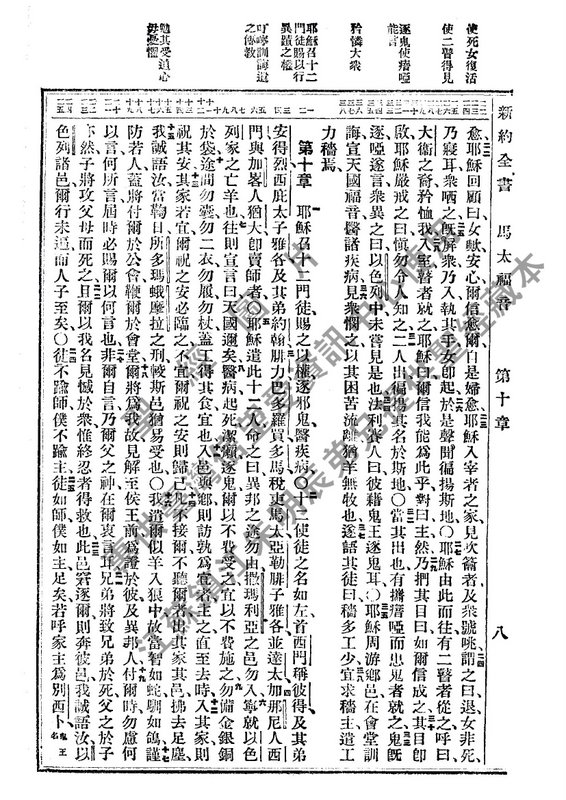 新約全書 馬太福音 第十章 八
使死女復活
使二瞽得見
逐鬼使瘖啞
能言
矜憐大衆
耶穌召十二
門徒賜以行
異蹟之權
叮嚀訓誨遣
之傳教
勉其受迫心
毋畏懼
愈耶穌回顧曰女歟安心爾信愈爾自是婦愈耶穌入宰者之家見吹籥者及衆號咷謂之曰退女非死
乃寢耳衆哂之旣屏衆乃入執其手女卽起於是聲聞徧揚斯地○耶穌由此而往有二瞽者從之呼曰
大衞之裔矜恤我入室瞽者就之耶穌曰爾信我能爲此乎對曰主然乃捫其目曰如爾信成之其目卽
啟耶穌嚴戒之曰愼勿令人知之二人出徧播其名於斯地○當其出也有攜瘖啞而患鬼者就之鬼旣
逐啞遂言衆異之曰以色列中未嘗見是也法利賽人曰彼藉鬼王逐鬼耳○耶穌周游鄉邑在會堂訓
誨宣天國福音醫諸疾病見衆憫之以其困苦流離猶羊無牧也遂語其徒曰穡多工少宜求穡主遣工
力穡焉
第十章 耶穌召十二門徒賜之以權逐邪鬼醫疾病○十二使徒之名如左首西門稱彼得及其弟
安得烈西庇太子雅各及其弟約翰腓力巴多羅買多馬稅吏馬太亞勒腓子雅各並達太加那尼人西
門與加畧人猶大卽賣師者○耶穌遣此十二人命之曰異邦之途勿由撒瑪利亞之邑勿入寧就以色
列家之亡羊也往則宣言曰天國邇矣醫病起死潔癩逐鬼爾以不費受之宜以不費施之勿備金銀銅
於袋途間勿囊勿二衣勿履勿杖蓋工得其食宜也入邑與鄉則訪孰爲宜者主之直至去時入其家則
祝其安其家若宜爾祝之安必臨之不宜爾祝之安則歸己凡不接爾不聽爾者出其家其邑拂去足塵
我誠語汝當鞫日所多瑪蛾摩拉之刑較斯邑猶易受也○我遣爾似羊入狼中故當智如蛇馴如鴿謹
防若人蓋將付爾於公會鞭爾於會堂爾將爲我故見解至侯王前爲證於彼及異邦人付爾時勿慮何
以言何所言屆時必賜爾以何言也非爾自言乃爾父之神在爾衷言耳兄弟將致兄弟於死父之於子
亦然子將攻父母而死之且爾以我名見憾於衆惟終忍者得救也此邑窘逐爾則奔彼邑我誠語汝以
色列諸邑爾行未遍而人子至矣○徒不踰師僕不踰主徒如師僕如主足矣若呼家主爲別西卜鬼王名